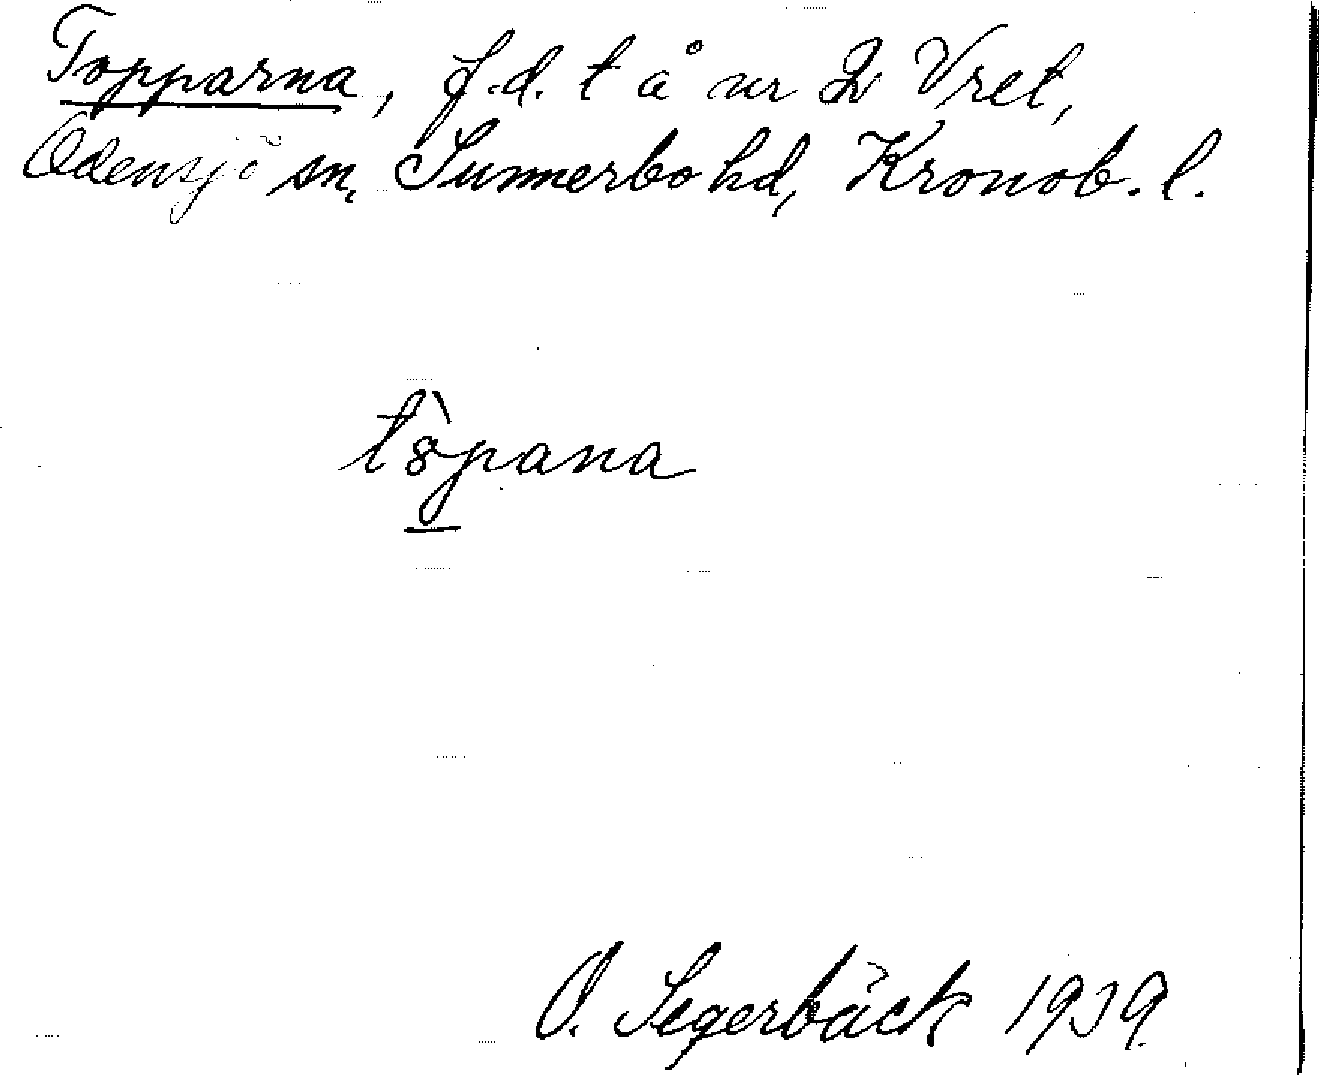 Topparna, f.d. t å nr 2 Vret,
Odensjö sn, Sunnerbo hd, Kronob. l.
tòpana
O. Segerbäck 1939